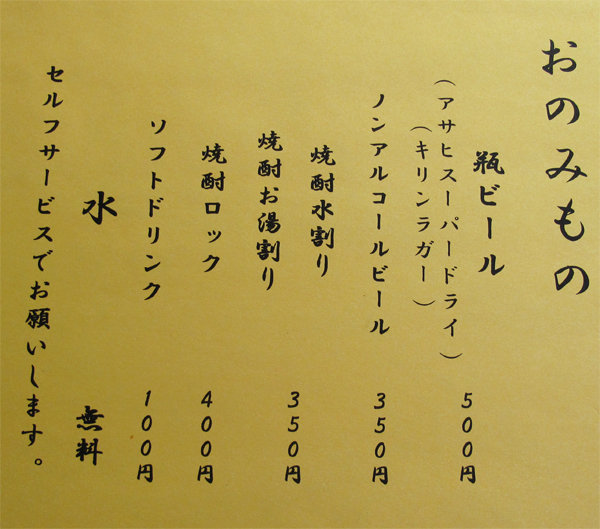 おのみもの
瓶ビール 500円
(アサヒスーパードライ)
(キリンラガー)
ノンアルコールビール 350円
焼酎水割り
焼酎お湯割り 350円
焼酎ロック 400円
ソフトドリンク 100円
水 無料
セルフサービスでお願いします。